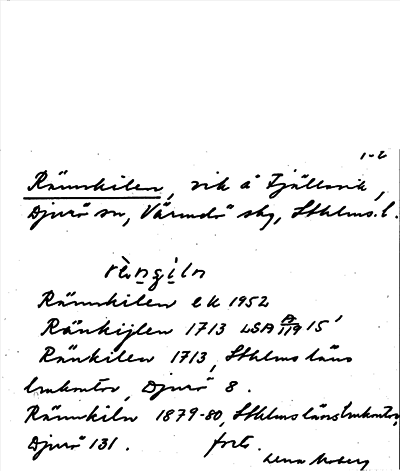 1-2
Rännkilen, vik å Fjällsvik,
Djurö sn, Värmdö skg, Sthlms. l.
rèngiln
Rännkilen ek 1952
Ränkijlen 1713 LSA A 119 15'
Ränkilen 1713, Sthlms läns
lmkontor, Djurö 8.
Rännkiln 1879-80, Sthlms länslmkontor,
Djurö 131. forts.
Lena Moberg